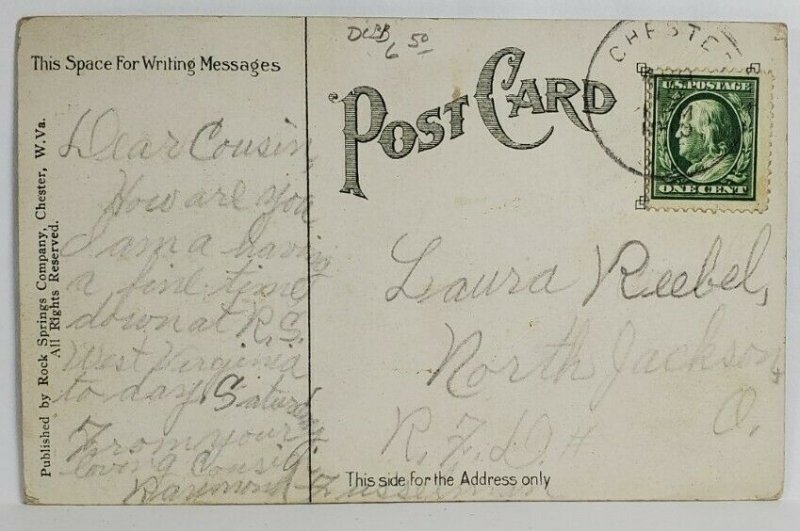 This Space For Writing Messages
Dear Cousin,
How are you
I am a having
a fine time
down at R. S.
West Virginia
to day Saturday
From your
loving Cousin
Raymond
Published by Rock Springs Company, Chester, W. Va.
All Rights Reserved.
POST CARD
6 50
CHESTE
U.S. POSTAGE
ONE CENT
Laura Reebel,
North Jackson
O.
R. F. D #
This side for the Address only